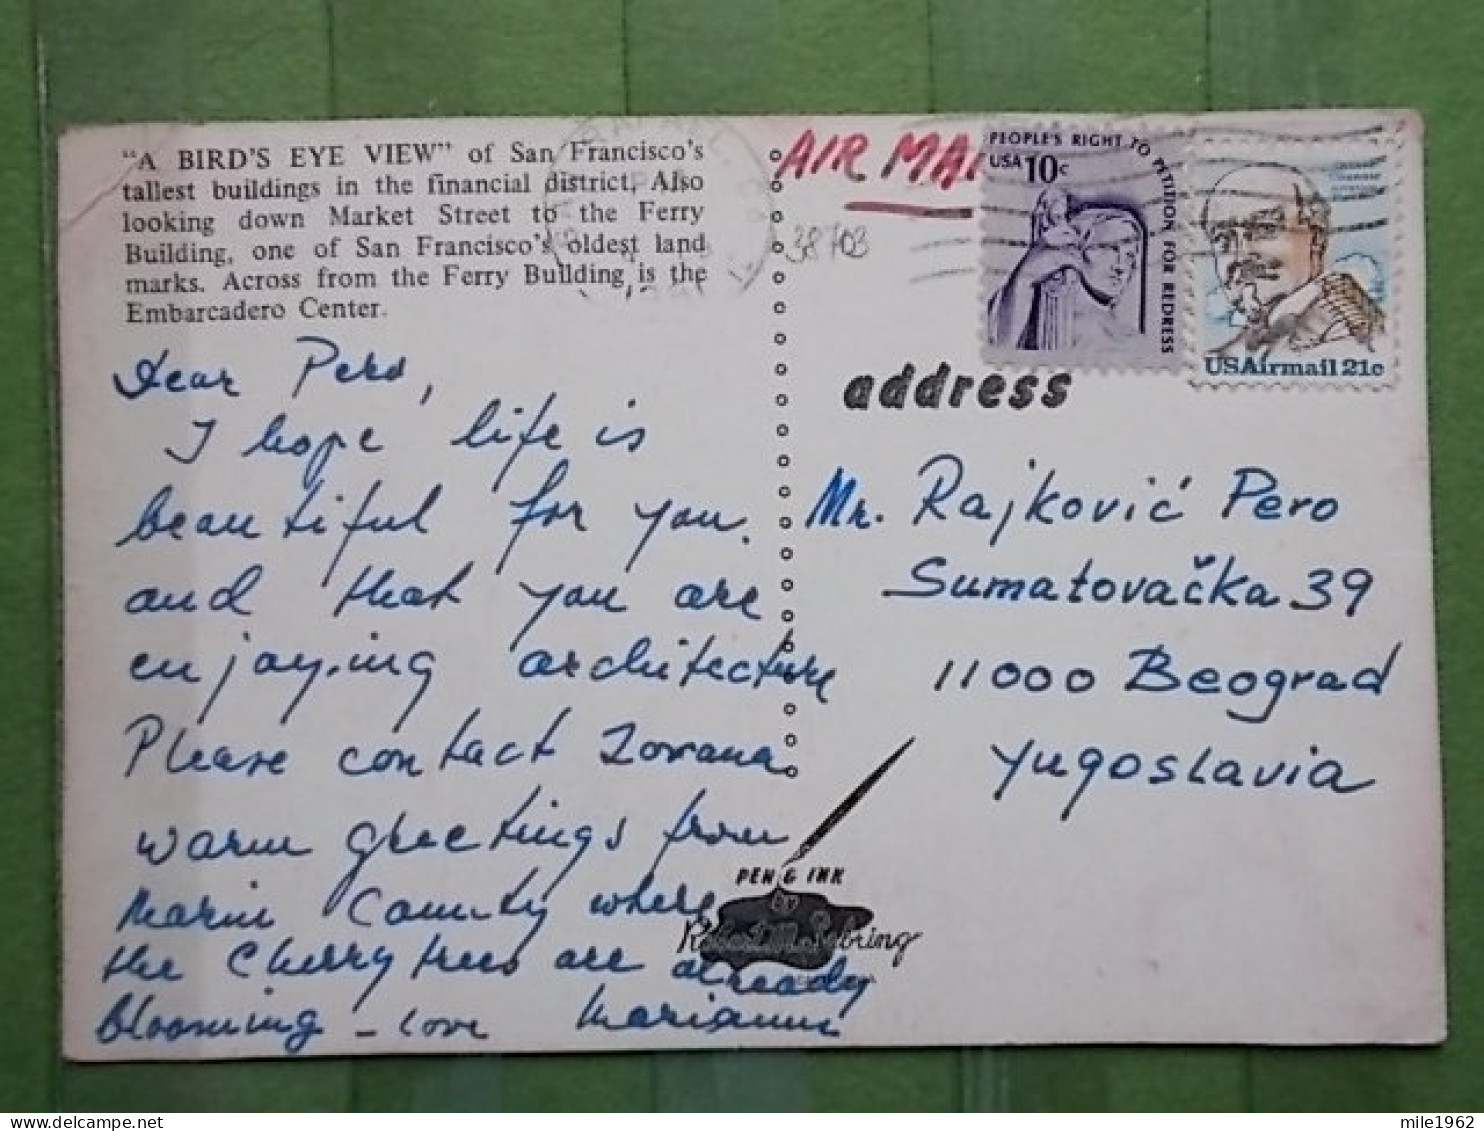 "A BIRD'S EYE VIEW" of San Francisco's
tallest buildings in the financial district. Also
looking down Market Street to the Ferry
Building, one of San Francisco's oldest land
marks. Across from the Ferry Building is the
Embarcadero Center.
Dear Pero,
I hope life is
beautiful for you.
and that you are
enjoying architecture
Please contact Zorana
warm greetings from
Marin County where
the Cherry trees are already
blooming - love Marianne
AIR MAIL
38703
PEOPLE'S RIGHT TO PETITION FOR REDRESS
USA 10c
USAirmail 21c
address
Mr. Rajković Pero
Sumatovačka 39
11000 Beograd
Yugoslavia
PEN & INK
by
Robert M. Sebring
mile1962